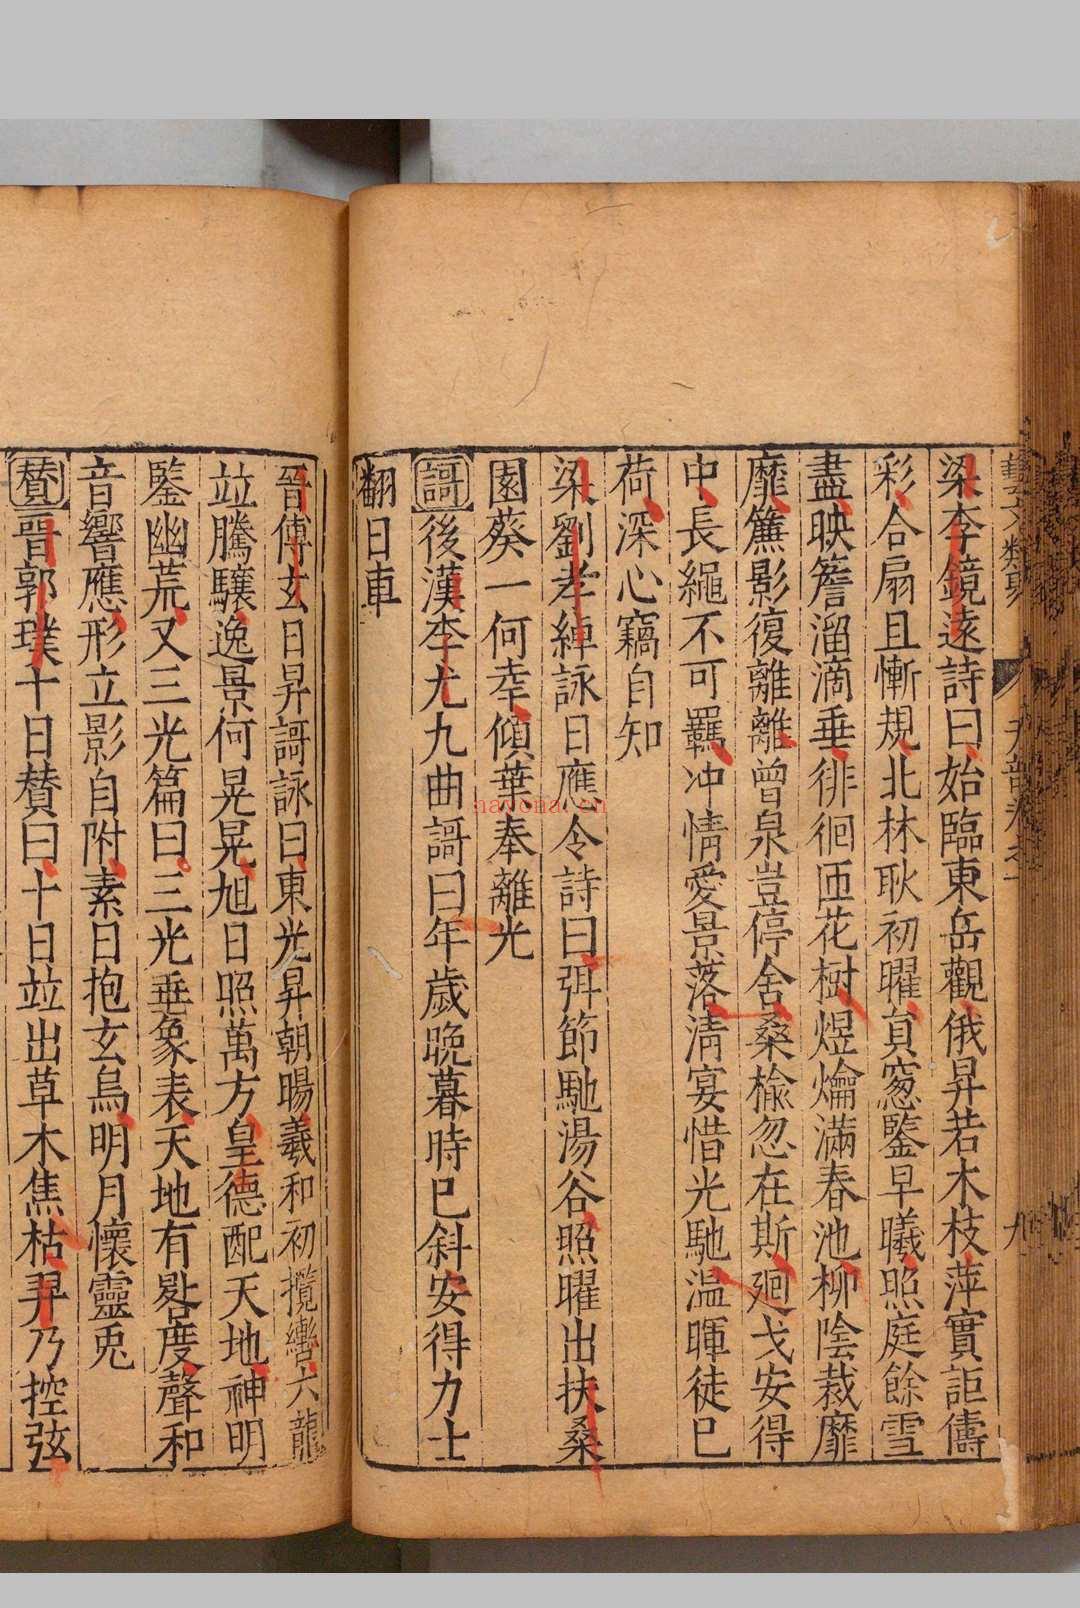 藝文類聚 天部卷之一 九
梁李鏡遠詩曰始臨東岳觀俄昇若木枝萍實詎儔
彩合扇且慚規北林耿初曜㫖窓鑒早曦照庭餘雪
盡映簷溜滴垂徘徊匝花樹煜爚滿春池柳陰裁靡
靡簾影復離離曾泉豈停舍桑榆忽在斯迴戈安得
中長繩不可羈冲情愛景落清宴惜光馳温暉徒巳
荷深心竊自知
梁劉孝綽詠日應令詩曰弭節馳湯谷照曜出扶桑
園葵一何幸傾華奉離光
謌後漢李尤九曲謌曰年歲晚暮時巳斜安得力士
翻日車
晉傅玄日昇謌詠曰東光昇朝暘羲和初攬轡六龍
竝騰驤逸景何晃晃旭日照萬方皇德配天地神明
鑒幽荒又三光篇曰三光垂象表天地有晷度聲和
音響應形立影自附素日抱玄烏明月懷靈兎
賛晉郭璞十日賛曰十日竝出草木焦枯羿乃控弦
navona.cn